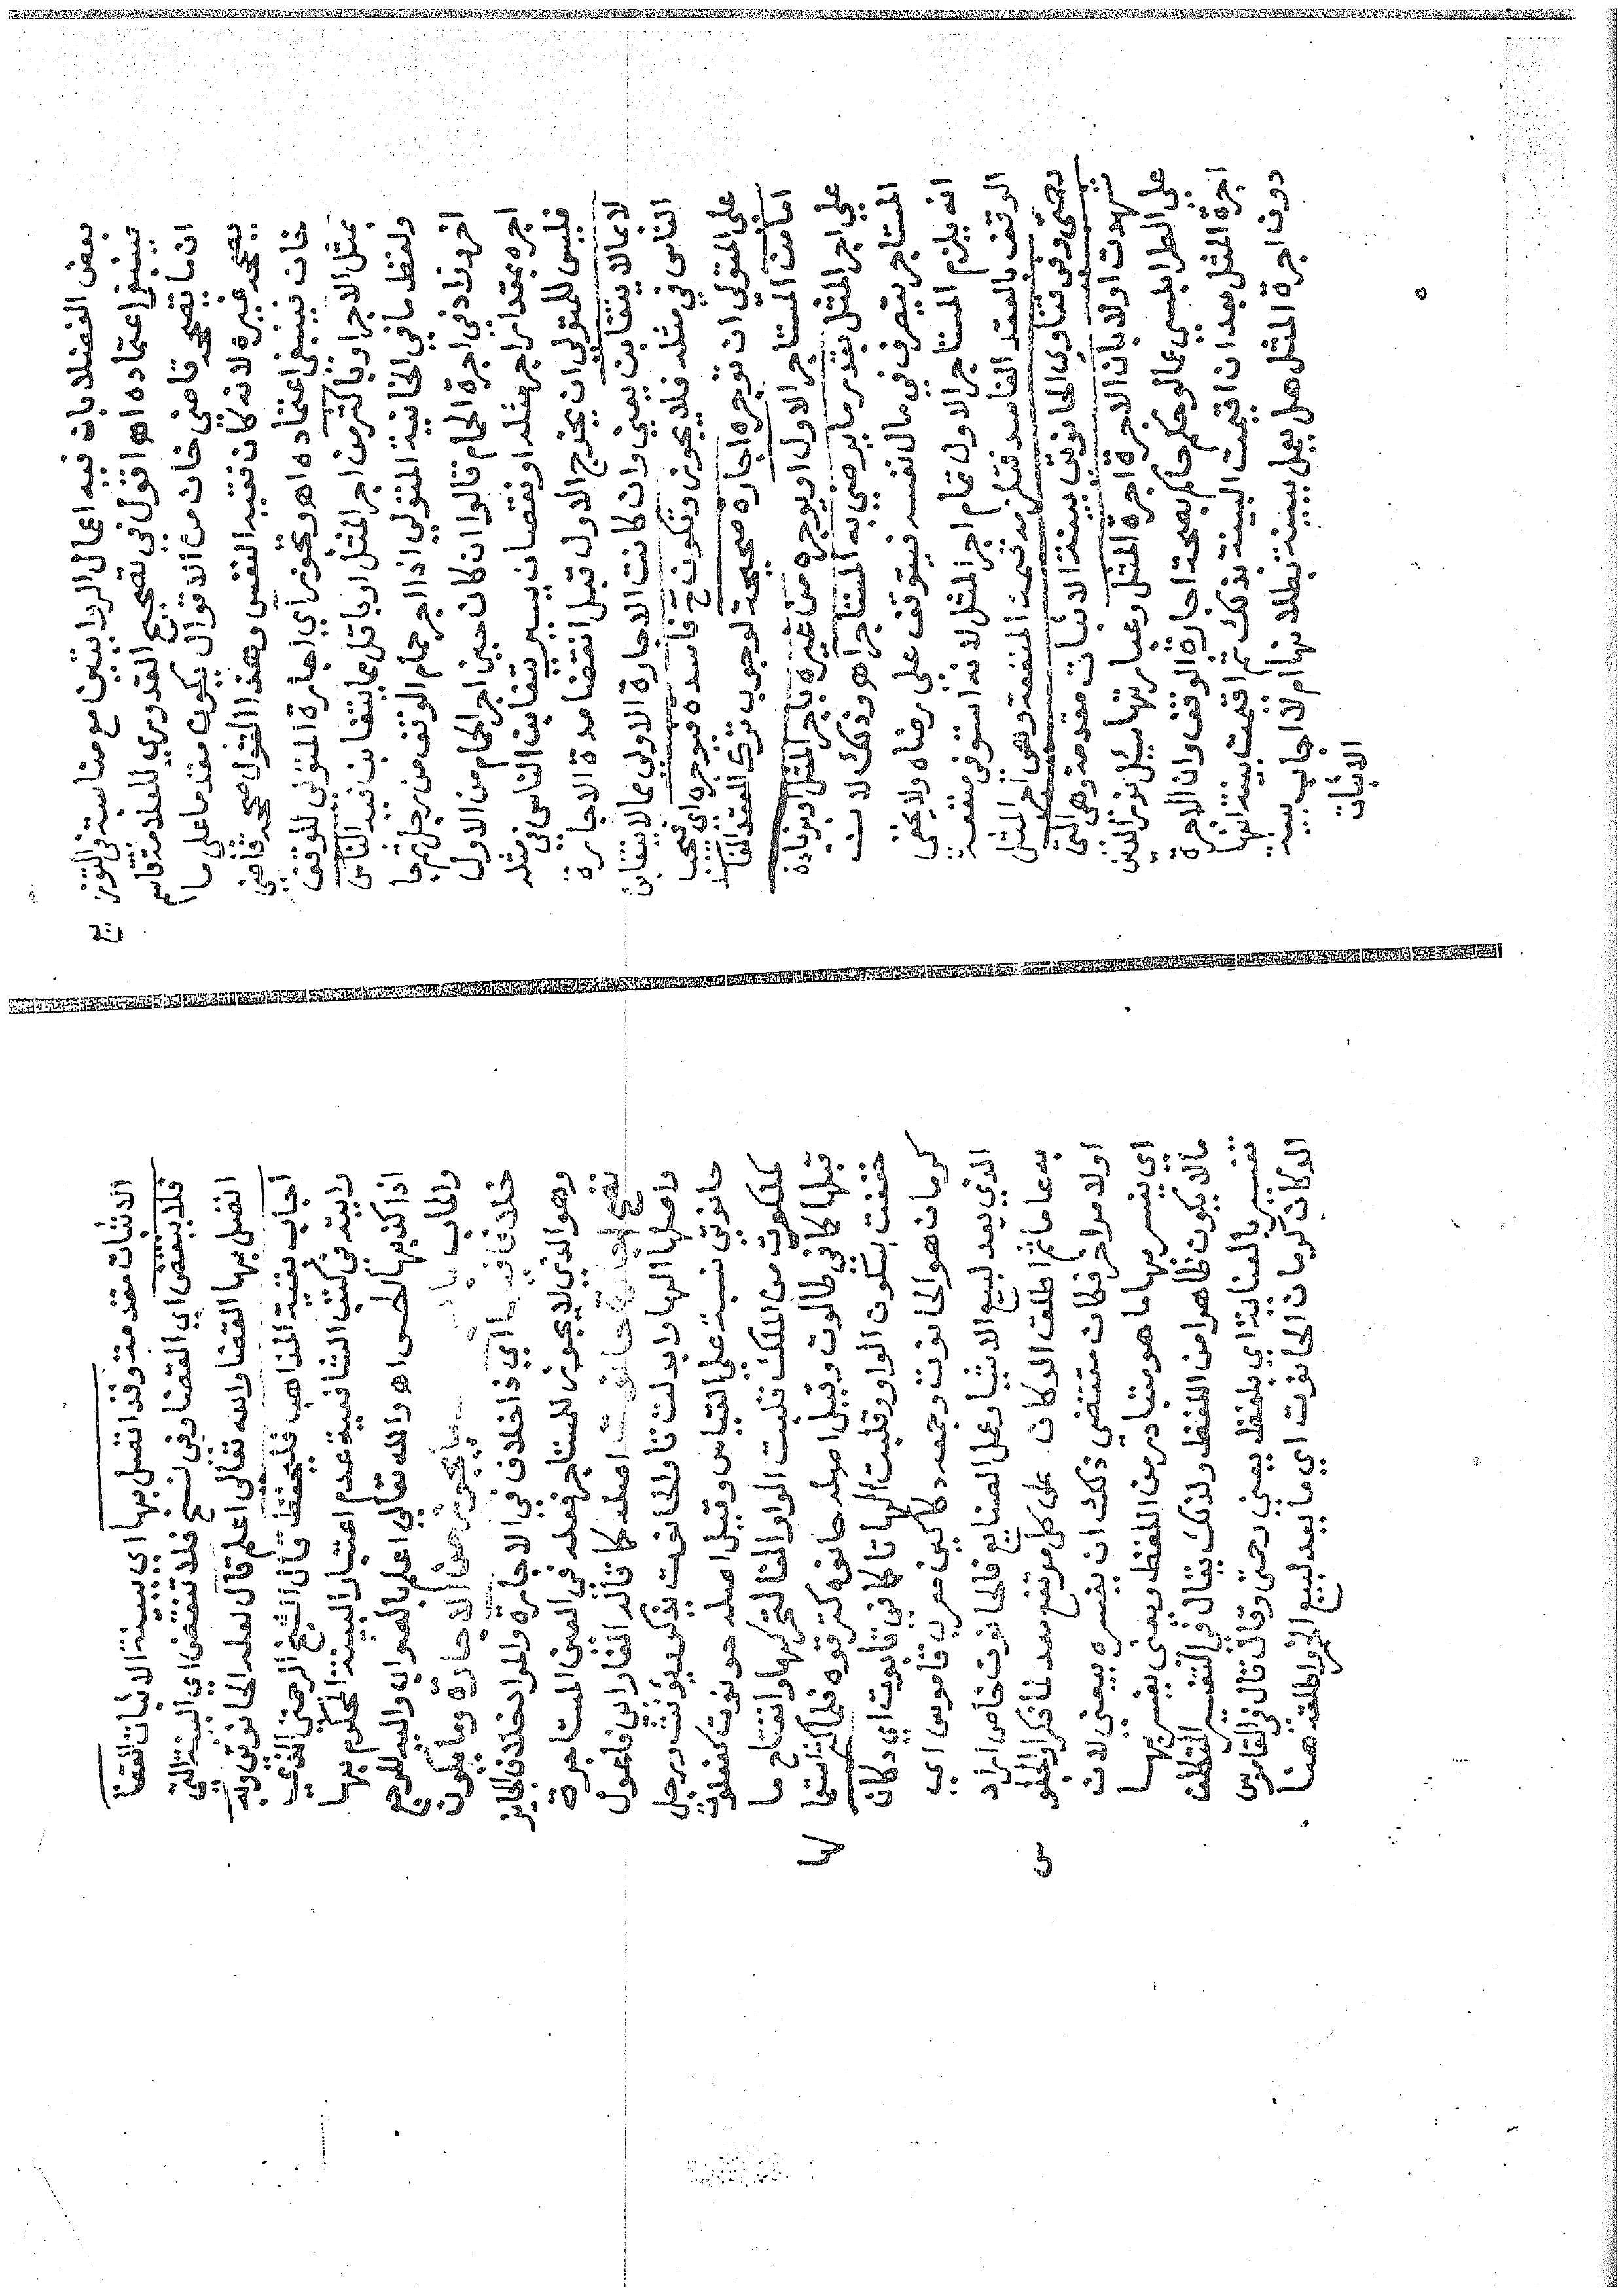 بعض الفضلا بان فيه اعمال الروايتين مع مناسبته في التوز
فينبغي اعتماده اه اقول في تصحيح القدوري للعلامة قاسم
ان ما يصححه قاضي خان من الاقوال يكون مقدما على ما
يصححه غيره لانه كان فقيه النفس وهذا القول صححه قاضي
خان فينبغي اعتماده اه وتجوز اي اجارة المتولي للوقف
بمثل الاجر او باكثر من اجر المثل او باقل بما يتغابن فيه الناس
ولفظ ما في الخانية المتولي اذا اجر حمام الوقف من رجل ثم جا
اخر وزاد في اجرة الحمام قالوا ان كان حين اجر الحمام من الاول
اجره بمقدار اجر مثله او نقصان يسير يتغابن الناس في مثله
فليس للمتولي ان يخرج الاول قبل انقضا مدة الاجارة
لا بما لا يتغابن يعني وان كانت الاجارة الاولى بما لا يتغابن
الناس في مثله فلا يجوز وتكون ح فاسدة فيوجره اي فيجب
على المتولي ان يوجره اجارة صحيحة لوجوب ترك العقد الفا
اما من المستاجر الاول او يوجره من غيره باجر المثل او بزيادة
على اجر المثل بقدر ما يرضى به المستاجر اه وذلك لان
المستاجر يتصرف في مال نفسه فيتوقف على رضاه ولا يخفى
انه يلزم المستاجر الاول تمام اجر المثل لانه استوفى منفعة
الوقف بالعقد الفاسد فتلزمه قيمة المنفعة وهي اجر المثل
رحمتي وفي فتاوى الحانوتي بينة الاثبات مقدمة وهي التي
شهدت اولا بان الاجرة اجرة المثل وعبارتها سئل نور الدين
على الطرابلسي عما لو حكم حاكم بصحة اجارة الوقف وان الاجرة
اجرة المثل بعد ان اقيمت البينة بذلك ثم اقيمت بينة انها
دون اجرة المثل هل يعمل ببينة بطلانها ام لا اجاب بينة
الاثبات
الاثبات مقدمة وقد اتصل بها اي ببينة الاثبات القضا
فلا ينقض اي القضا وفي نسخ فلا تنقض اي البينة التي
اتصل بها القضا والله تعالى اعلم قال لعله الحانوتي وبه
اجاب بقية المذاهب فليحفظ قال الشيخ الرحمتي الذي
رايته في كتب الشافعية عدم اعتبار البينة المحكوم بها
اذا كذبها الحس اه والله تعالى اعلم بالصواب واليه المرجع
والماب باب ما يجوز من الاجارة وما يكون
خلافا فيها اي ذا خلاف في الاجارة والمراد خلاف الجائز
وهو الذي لا يجوز للمستاجر فعله في العين المستاجرة
تصح اجارة حانوت اصله كما قاله الفارابي فاعول
واصلها الها وابدلت تا والحانوت يذكر ويونث ورجل
حانوتي نسبة على القياس وقيل اصله حنووت كفعلوت
كملكوت من الملك قلبت الواو الفا لتحركها وانفتاح ما
قبلها كما في طالوت وقيل اصله حانوه كترقوه فلما
خففت بسكون الواو وقلبت الها تا كما في تابوت اي دكان
كرمان هو الحانوت وجمعه دكاكين معرب قاموس اي
الذي يعد لبيع الاشيا وعمل الصنايع فالحانوت خاص اراد
به عاما ثم اطلق الدكان على كل مرتفع معد لما ذكر او للجلو
اولا مر اخر فكان مقتضى ذلك ان يفسره بيعني لان
اي يفسر بها ما هو متبادر من اللفظ ويعني يفسر بها
مالا يكون ظاهرا من اللفظ ولذلك يقال في التفسير
تفسير بالعناية اي بلفظ يعني رحمتي وقال قال في القاموس
الدكان كرمان الحانوت اي ما يعد لبيع الخمر واطلقه هنا